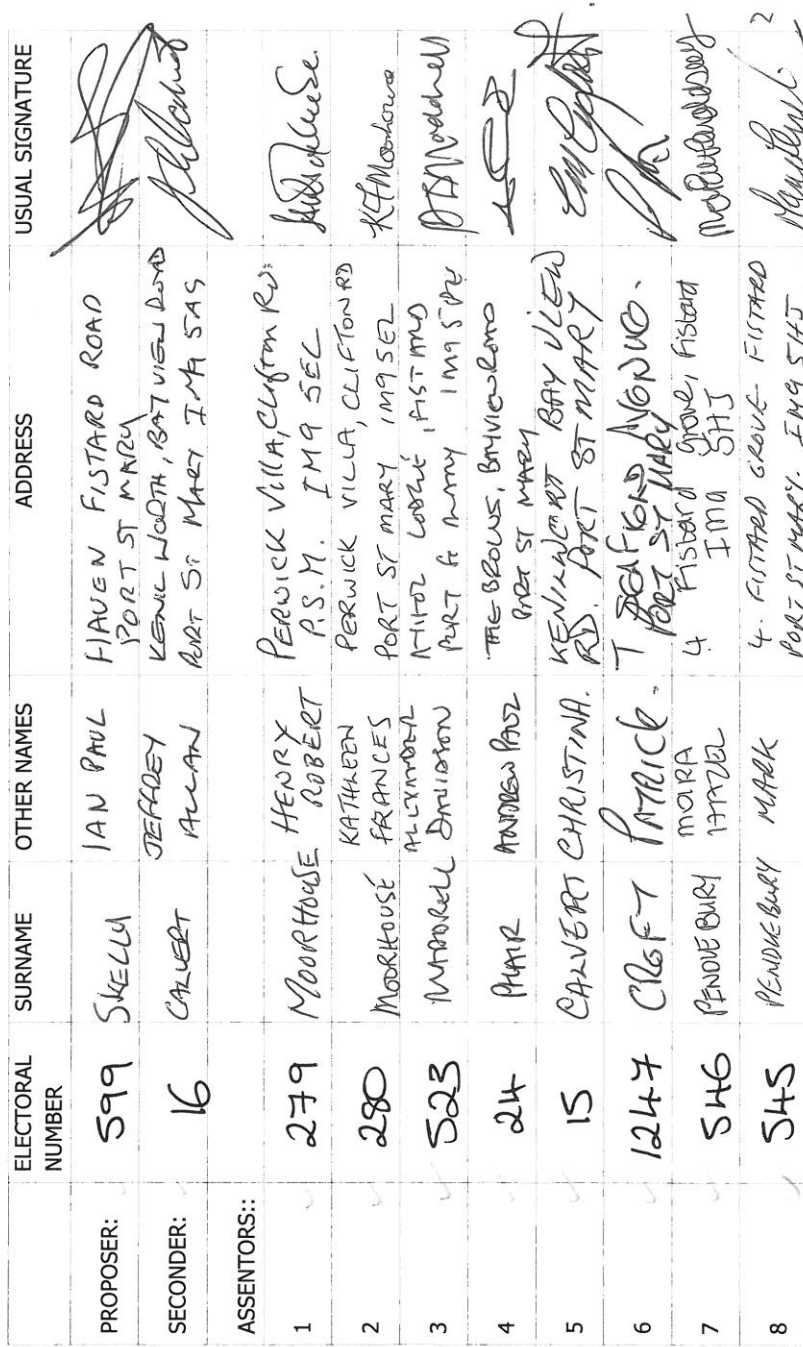 ELECTORAL NUMBER SURNAME OTHER NAMES ADDRESS USUAL SIGNATURE
PROPOSER: 599 SKELLY IAN PAUL HAVEN FISTARD ROAD
PORT ST MARY
SECONDER: 16 CALVERT JEFFREY ALLAN KENILWORTH, BAY VIEW ROAD
PORT ST MARY IM9 5AG
ASSENTORS::
1 279 MOORHOUSE HENRY ROBERT PERWICK VILLA, Clifton RD:
P.S.M. IM9 5EL
2 280 MOORHOUSE KATHLEEN FRANCES PERWICK VILLA, CLIFTON RD
PORT ST MARY IM9 5EL KFMoorhouse
3 523 MADDRELL ALEXANDER DAVIDSON LODGE, FISTARD
PORT St MARY IM9 5PE ADMaddrell
4 24 PHAIR ANDREW PAUL THE BROWS, BAYVIEW ROAD
PORT ST MARY
5 15 CALVERT CHRISTINA. KENILWORT BAY VIEW
RD. PORT ST MARY
6 1247 CROFT PATRICK.
PORT ST MARY
7 546 PENDLEBURY MOIRA HAZEL 4 Fistard Grove, Fistard
IM9 5HJ
8 545 PENDLEBURY MARK 4. FISTARD GROVE FISTARD
PORT ST MARY. IM9 5HJ